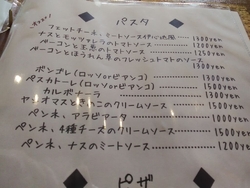 パスタ
フェットチーネ、ミートソース 1300yen
ナスとモッツァレラのトマトソース 1200yen
ベーコンと玉葱のトマトソース 1250yen
ベーコンとほうれん草のフレッシュトマトのソース
1200yen
ボンゴレ(ロッソorビアンコ) 1300yen
ペスカトーレ(ロッソorビアンコ) 1500yen
カルボナーラ 1300yen
ヤリイカときのこのクリームソース 1500yen
ペンネ、アラビアータ 1000yen
ペンネ、4種チーズのクリームソース 1500yen
ペンネ、ナスのミートソース 1200yen
ピザ